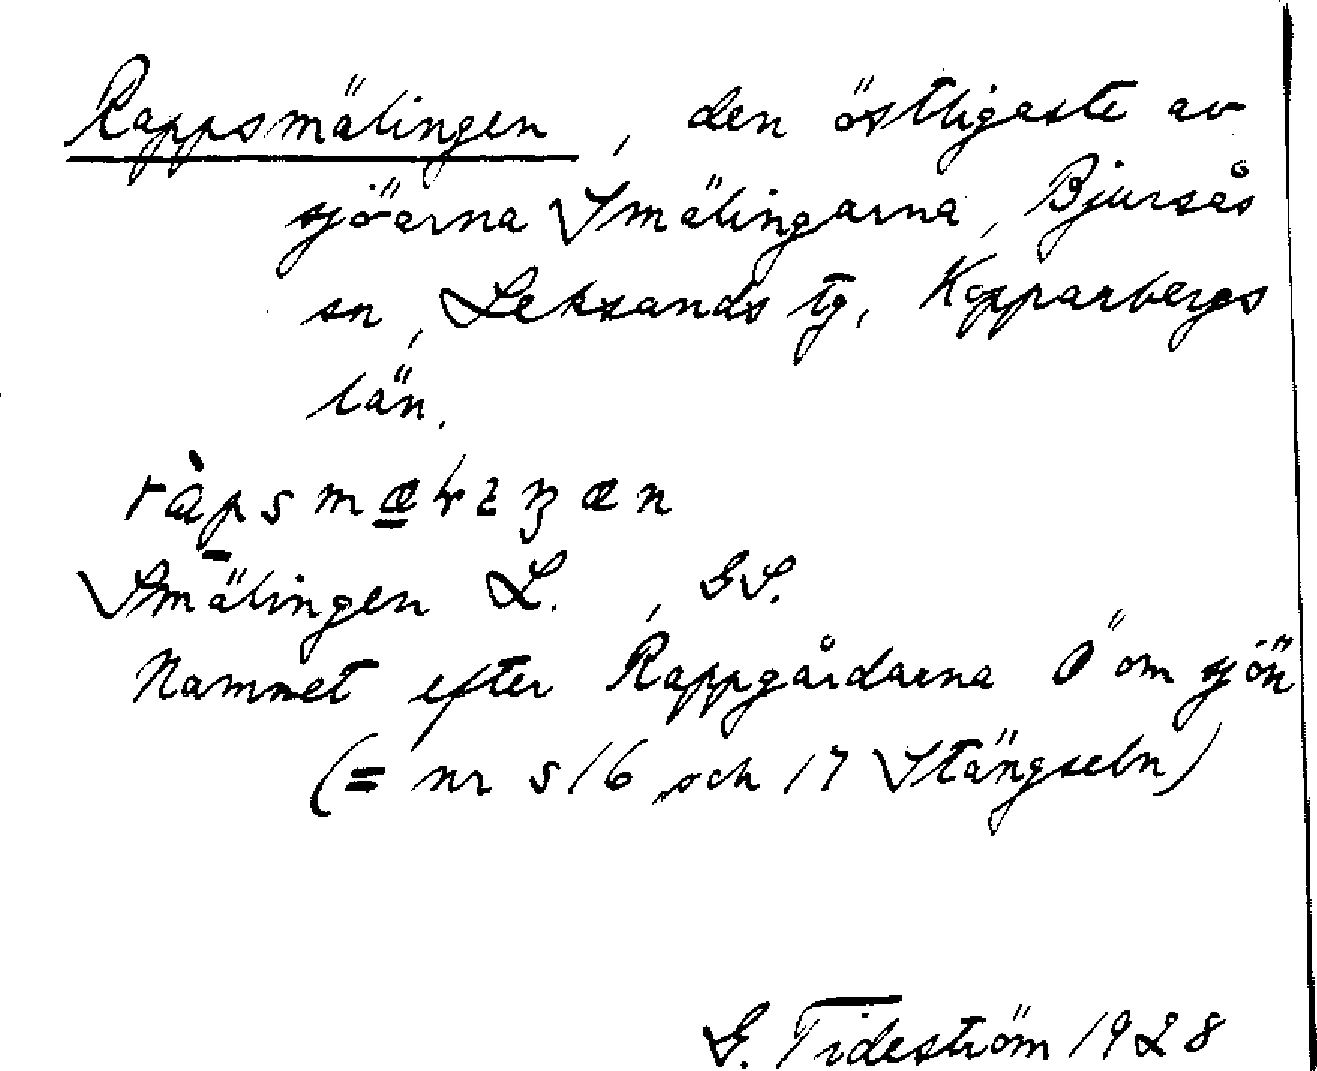 Rappsmälingen, den östligaste av
sjöarna Smälingarna, Bjursås
sn, Leksands tg, Kopparbergs
län.
Smälingen L. , GS.
Namnet efter Rappgårdarna Ö om sjön
(= nr 516 och 17 Stängseln)
G. Tideström 1928